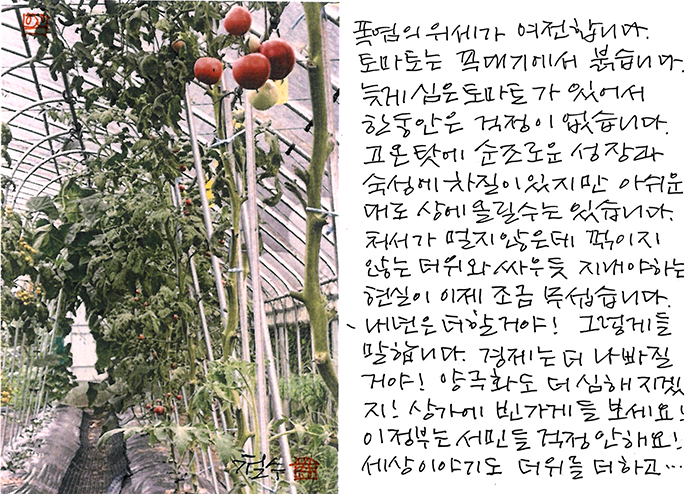 폭염의 위세가 여전합니다.
토마토는 꼭대기에서 붉습니다.
늦게 심은 토마토가 있어서
한동안은 걱정이 없습니다.
고온 탓에 순조로운 성장과
숙성에 차질이 있지만 아쉬운
대로 상에 올릴수는 있습니다.
처서가 멀지 않은데 꺾이지
않는 더위와 싸우듯 지내야하는
현실이 이제 조금 무섭습니다.
내년은 더할거야! 그렇게들
말합니다. 경제는 더 나빠질
거야! 양극화도 더 심해지겠
지! 상가에 빈가게들 보세요!
이정부는 서민들 걱정안해요!
세상이야기도 더위를 더하고…
철수